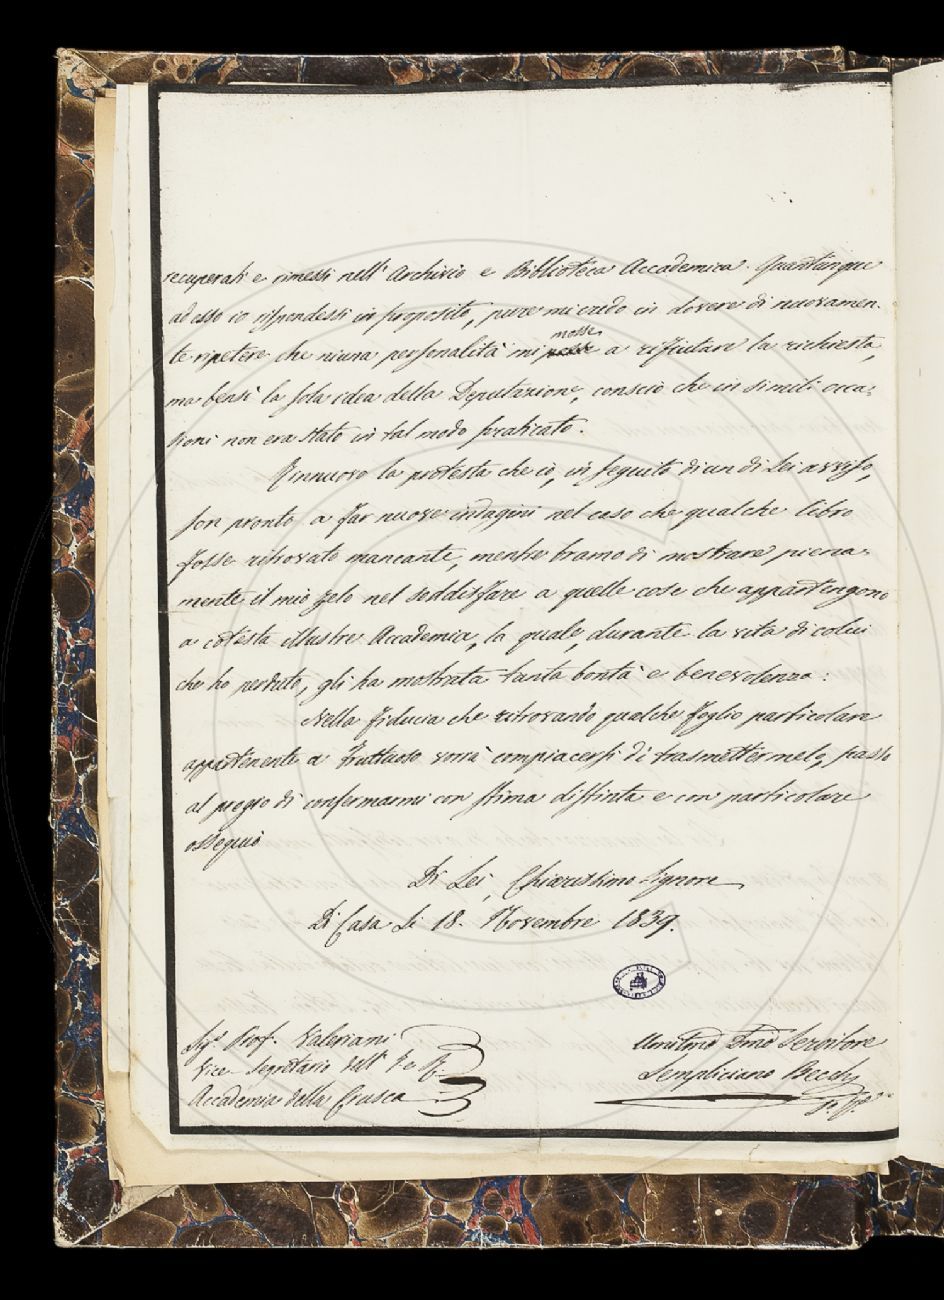 recuperati e rimessi nell' Archivio e Biblioteca Accademica. Quantunque
ad esso io rispondessi in proposito, pure mi credo in dovere di nuovamen-
te ripetere che niuna personalità mi mosse a rifiutare la richiesta,
ma bensì la sola idea della Deputazione, conscio che in simili occa-
sioni non era stato in tal modo praticato.
Rinnuovo la protesta che io, in seguito di un di Lei avviso,
son pronto a far nuove indagini nel caso che qualche libro
fosse ritrovato mancante, mentre bramo di mostrare piena-
mente il mio zelo nel soddisfare a quelle cose che appartengono
a cotesta illustre Accademia, la quale, durante la vita di colui
che ho perduto, gli ha mostrata tanta bontà e benevolenza.
Nella fiducia che ritrovando qualche foglio particolare
appartenente a Fruttuoso vorrà compiacersi di trasmettermelo, passo
al pregio di confermarmi con stima distinta e con particolare
ossequio
Di Lei, Chiarissimo Signore
Di Casa li 18. Novembre 1839.
Sigr. Prof. Valeriani
Vice Segretario dell' I. e R.
Accademia della Crusca
Umilmo Dmo Servitore
Sempliciano Becchi